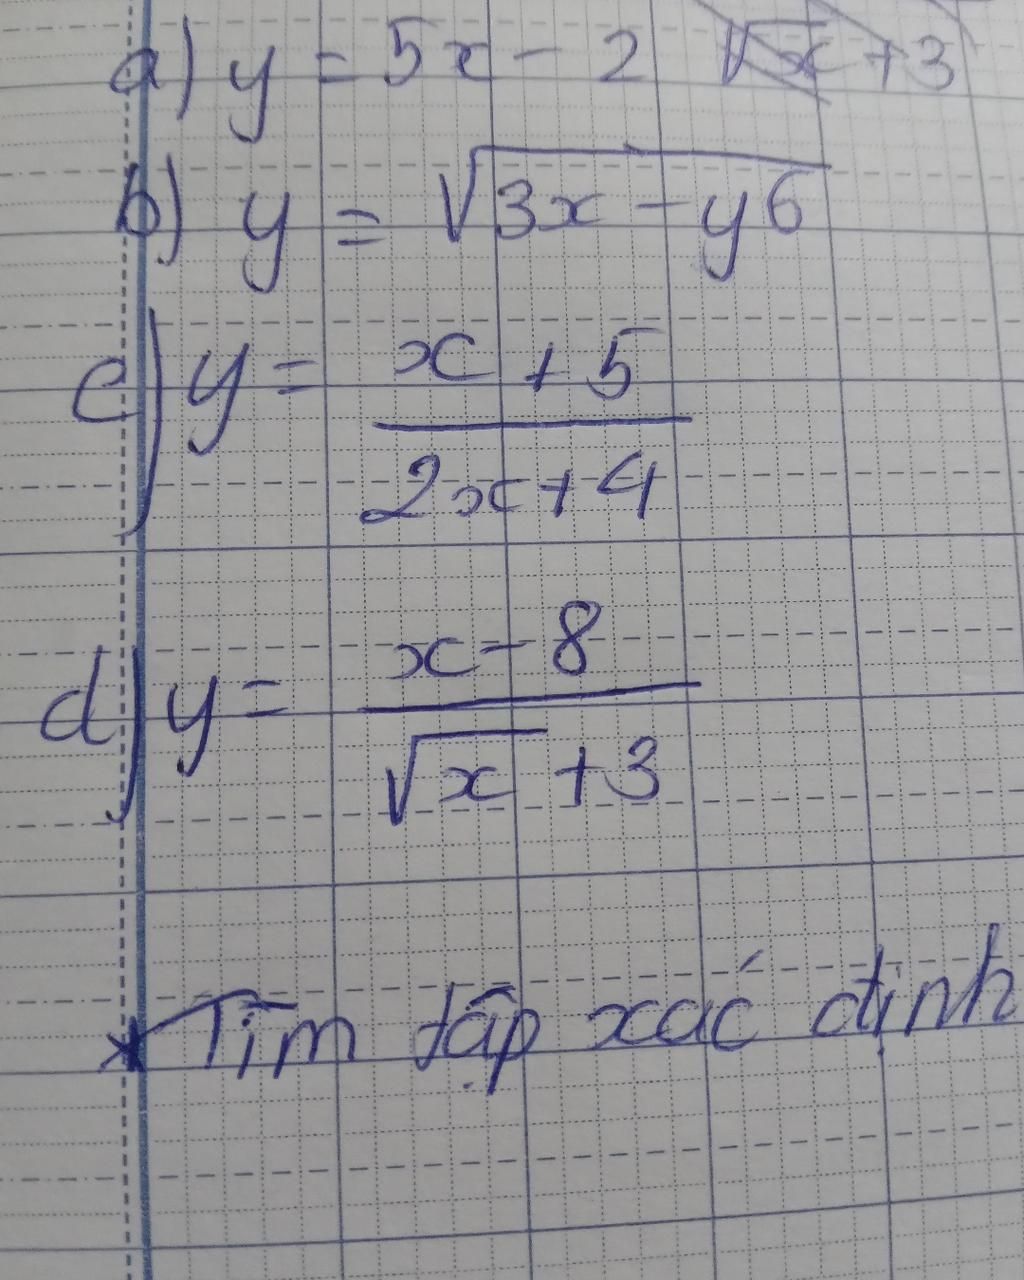 a) y = 5x - 2 √x + 3
b) y = √(3x - y6)
c) y = (x + 5)/(2x + 4)
d) y = (x - 8)/(√x + 3)
* Tìm tập xác định